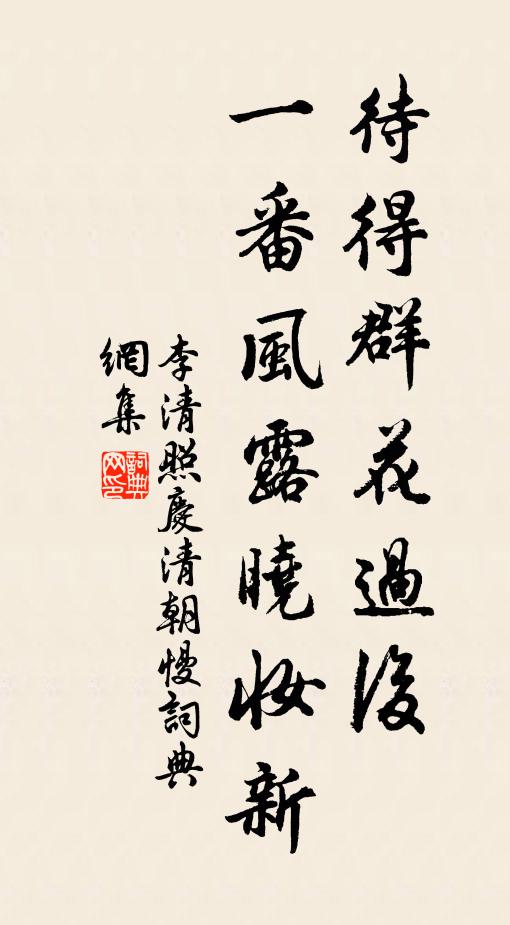 待得群花過後
一番風露曉妝新
李清照慶清朝慢詞典
網集
詞典
网印